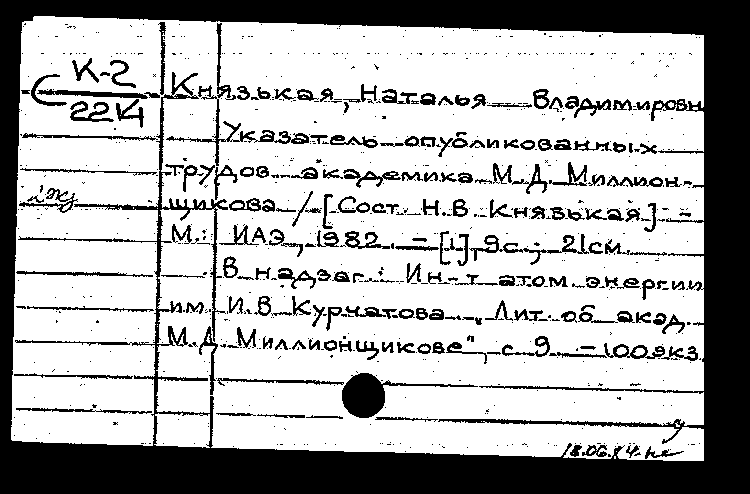 К-2
22174
Князькая, Наталья Владимировн
Указатель опубликованных
трудов академика М.Д. Миллион-
щикова / [Сост. Н.В. Князькая]. -
М.: ИАЭ, 1982. - [1], 9с.; 21см.
В надзаг.: Ин-т атом. энергии
им. И.В. Курчатова. „Лит. об акад.
М.Д. Миллионщикове", с. 9. - 100экз.
18.06.84.